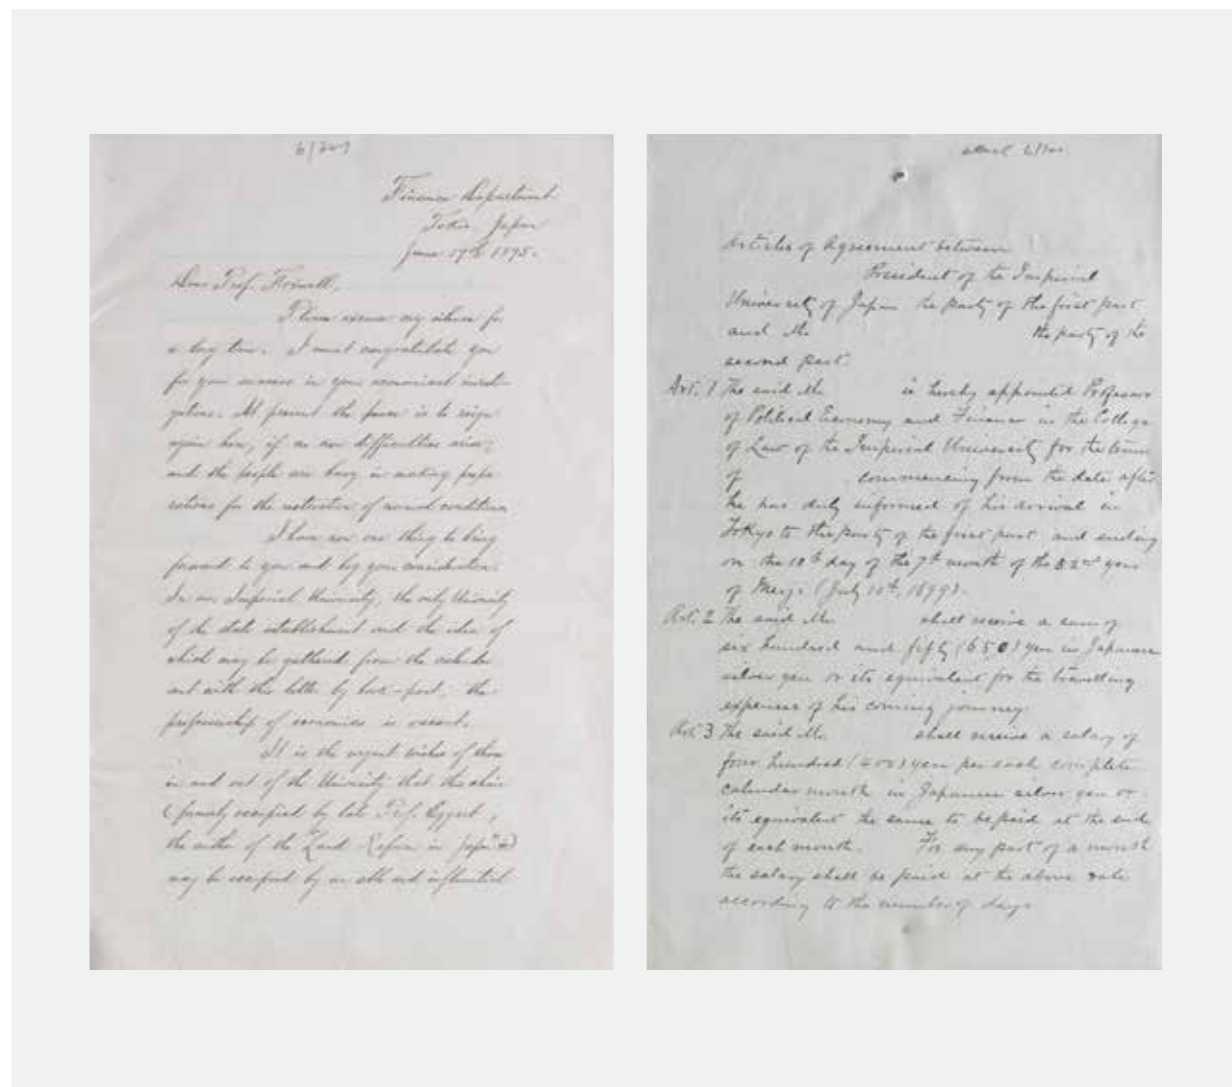 6/207
Finance Department
Tokio Japan
June 19th 1895.
Dear Prof. Foxwell,
Please excuse my silence for
a long time. I must congratulate you
for your success in your economical investi-
gations. At present the peace is to reign
again here, if no new difficulties arise;
and the people are busy in making prepa-
rations for the restoration of normal conditions.
I have now one thing to bring
forward to you and beg your consideration.
In our Imperial University, the only University
of the state establishment and the idea of
which may be gathered from the calendar
sent with this letter by book-post, the
professorship of economics is vacant.
It is the urgent wishes of those
in and out of the University that this chair
(formerly occupied by late Prof. Eggert,
the author of the "Land Reform in Japan")
may be occupied by an able and influential
Articles of Agreement between
President of the Imperial
University of Japan the party of the first part
and Mr. the party of the
second part.
Art. 1 The said Mr. is hereby appointed Professor
of Political Economy and Finance in the College
of Law of the Imperial University for the term
of commencing from the date after
he has duly informed of his arrival in
Tokyo to the party of the first part and ending
on the 10th day of the 7th month of the 32nd year
of Meiji (July 10th, 1899).
Art. 2 The said Mr. shall receive a sum of
six hundred and fifty (650) yen in Japanese
silver yen or its equivalent for the travelling
expenses of his coming journey
Art 3 The said Mr. shall receive a salary of
four hundred (400) yen per each complete
calendar month in Japanese silver yen or
its equivalent the same to be paid at the end
of each month. For any part of a month
the salary shall be paid at the above rate
according to the number of days